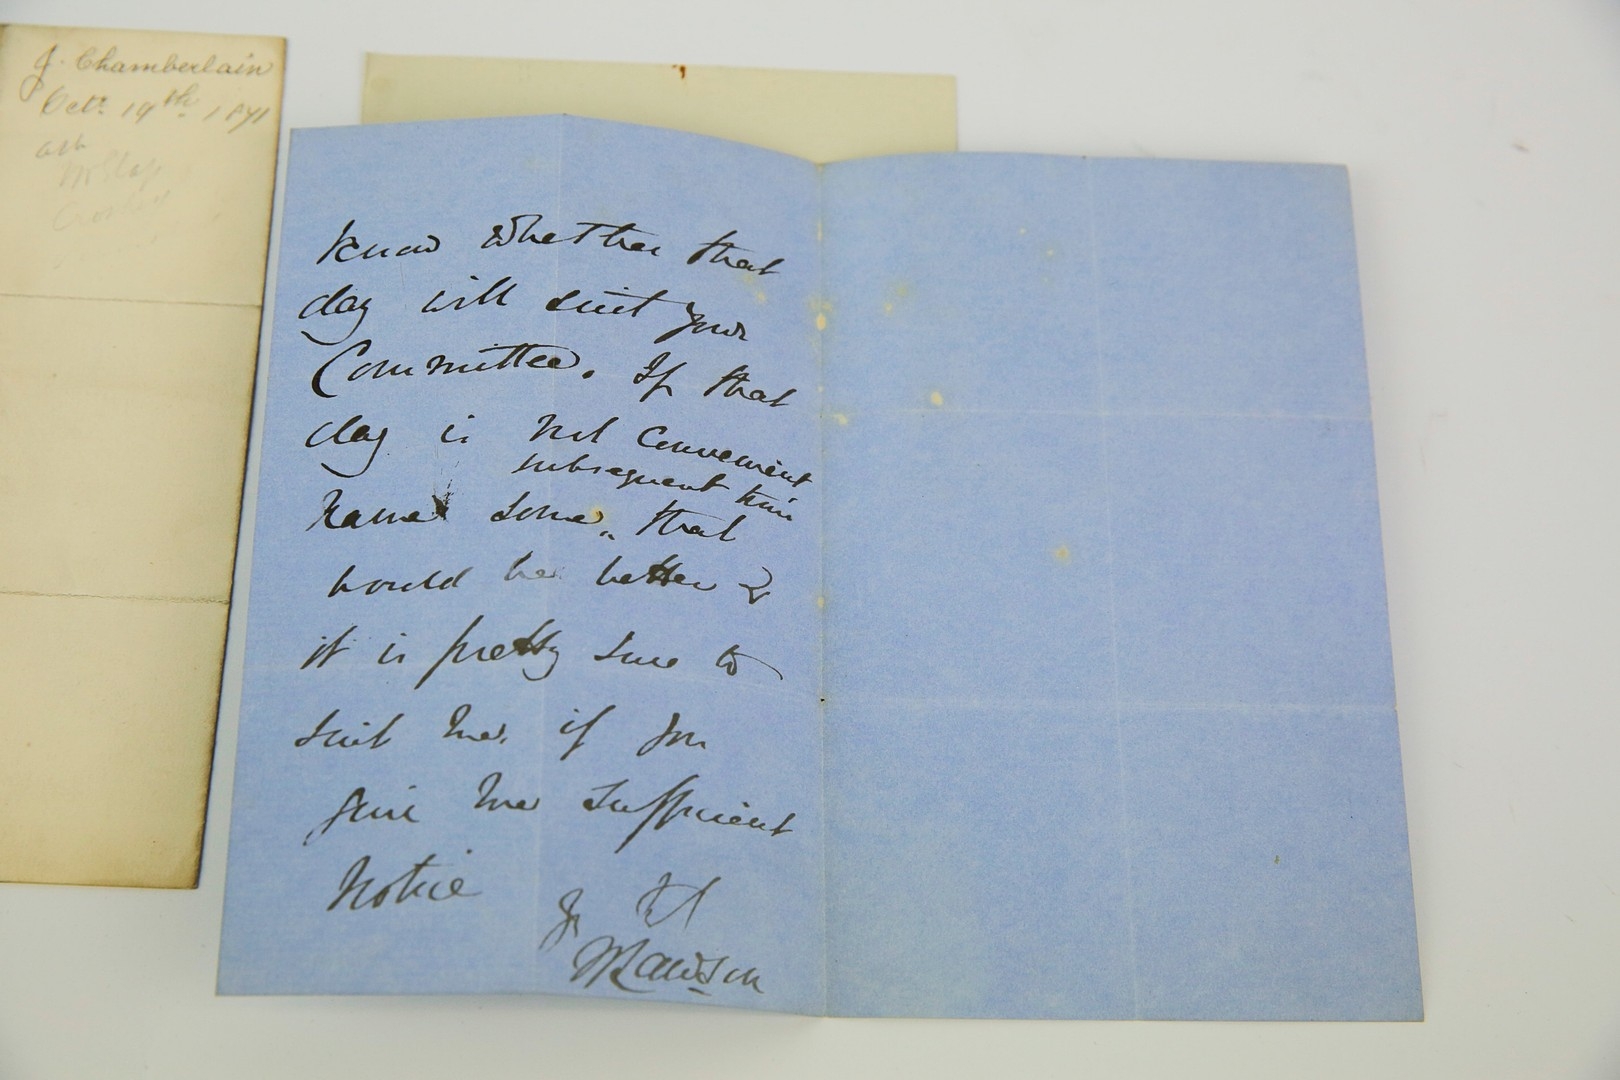 J. Chamberlain
Oct. 19th. 1871
know whether that
day will suit your
Committee. If that
day is not convenient
subsequent time
name some „ that
would be better &
it is pretty sure to
suit me, if you
give me sufficient
notice
Yr
W Lawson